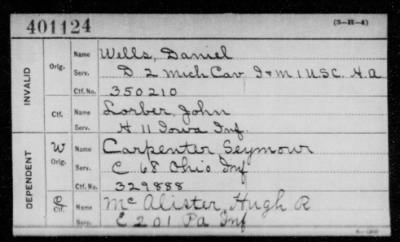 401124 (3-H-4)
INVALID
Orig. Name Wells, Daniel
Serv. D. 2 Mich Cav & M 1 U.S.C. H.A
Ctf. No. 350210
Ctf. Name Lorber, John
Serv. H 11 Iowa Inf.
DEPENDENT
W Orig. Name Carpenter Seymour
Serv. C 68 Ohio Inf
Ctf. No. 329888
Ctf. Name Mc Alister, Hugh R
Serv. E 201 Pa Inf